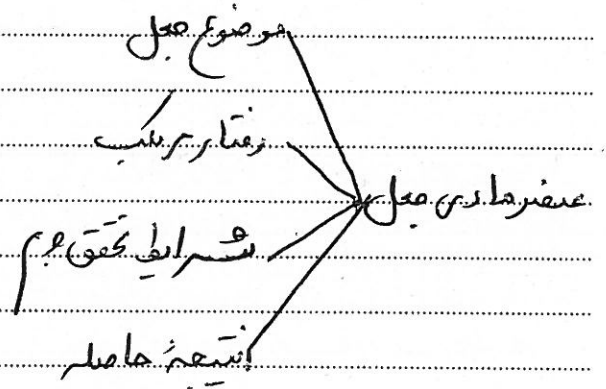 موضوع جعل
رفتار مرتکب
عنصر مادی جعل
شرایط تحقق جرم
نتیجهٔ حاصله